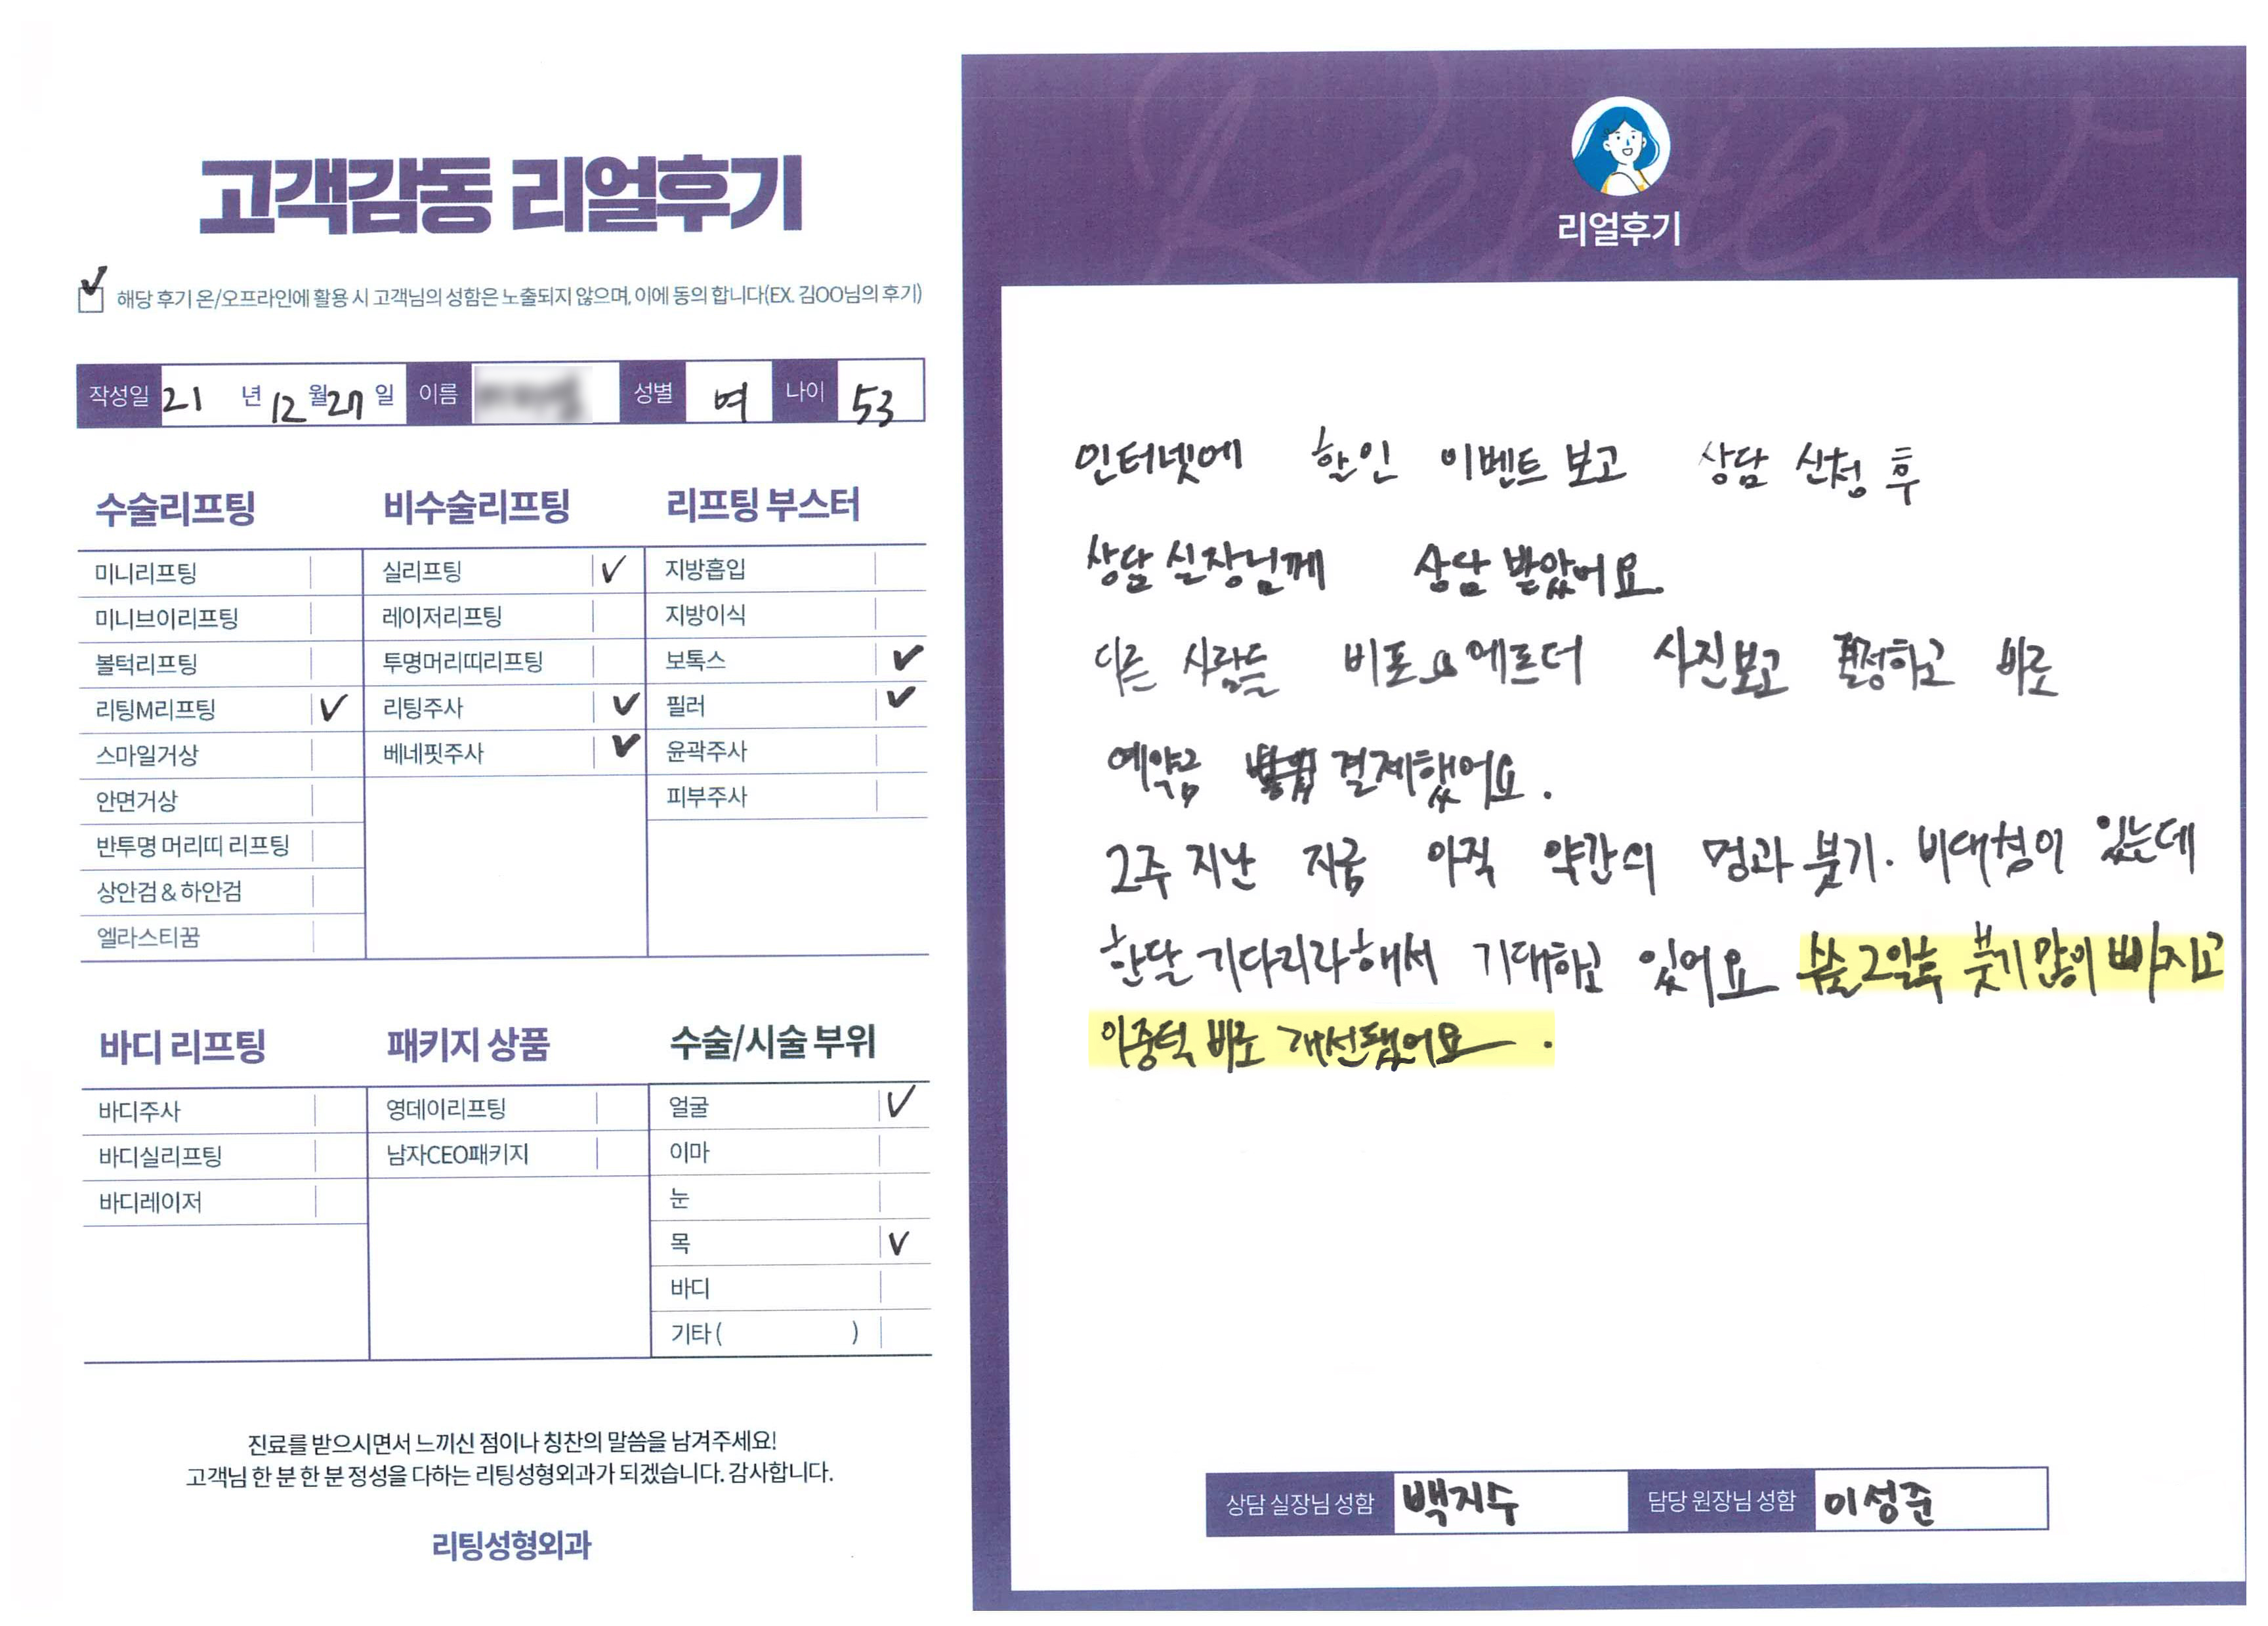 고객감동 리얼후기
해당 후기 온/오프라인에 활용 시 고객님의 성함은 노출되지 않으며, 이에 동의 합니다(EX. 김OO님의 후기)
작성일 21 년 12 월 27 일 이름 성별 여 나이 53
수술리프팅
미니리프팅
미니브이리프팅
볼턱리프팅
리팅M리프팅
스마일거상
안면거상
반투명 머리띠 리프팅
상안검 & 하안검
엘라스티꿈
비수술리프팅
실리프팅
레이저리프팅
투명머리띠리프팅
리팅주사
베네핏주사
리프팅 부스터
지방흡입
지방이식
보톡스
필러
윤곽주사
피부주사
바디 리프팅
바디주사
바디실리프팅
바디레이저
패키지 상품
영데이리프팅
남자CEO패키지
수술/시술 부위
얼굴
이마
눈
목
바디
기타 ( )
진료를 받으시면서 느끼신 점이나 칭찬의 말씀을 남겨주세요!
고객님 한 분 한 분 정성을 다하는 리팅성형외과가 되겠습니다. 감사합니다.
리팅성형외과
Review
리얼후기
인터넷에 할인 이벤트 보고 상담 신청 후
상담 실장님께 상담 받았어요.
다른 사람들 비포&에프터 사진보고 결정하고 바로
예약금 결제했어요.
2주 지난 지금 아직 약간의 멍과 붓기. 비대칭이 있는데
한달 기다리라해서 기대하고 있어요 수술 2일후 붓기 많이 빠지고
이중턱 바로 개선됐어요.
상담 실장님 성함 백지수 담당 원장님 성함 이성준